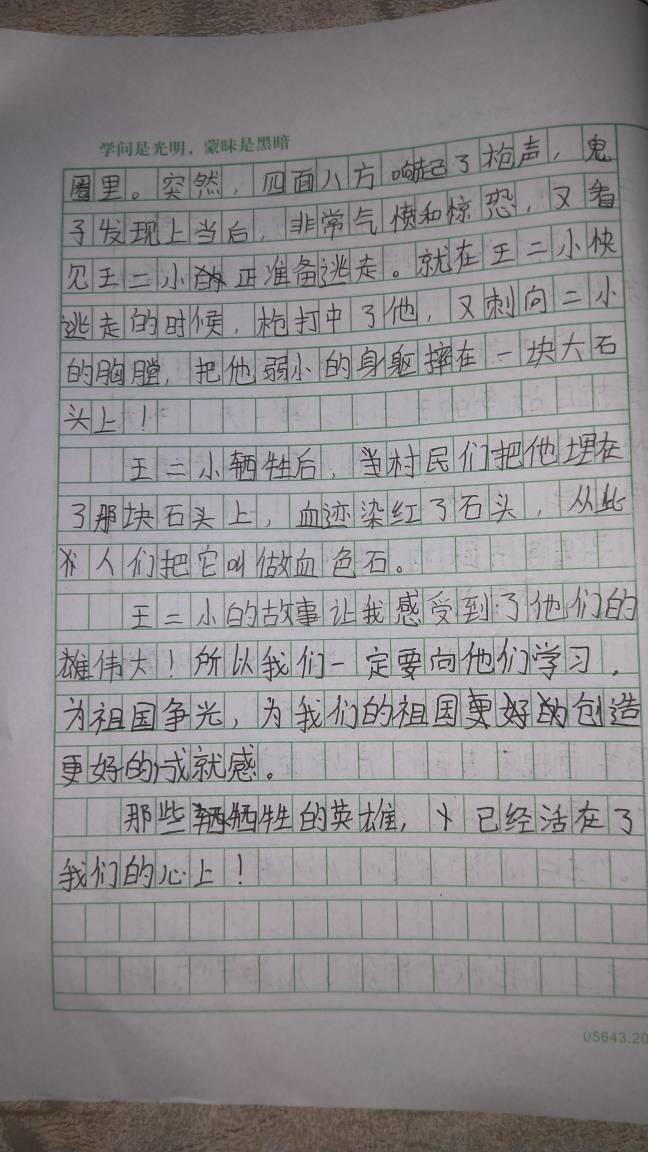 学问是光明，蒙昧是黑暗
圈里。突然，四面八方响起了枪声，鬼
子发现上当后，非常气愤和惊恐，又看
见王二小正准备逃走。就在王二小快
逃走的时候，枪打中了他，又刺向二小
的胸膛，把他弱小的身躯摔在一块大石
头上！
王二小牺牲后，当村民们把他埋在
了那块石头上，血迹染红了石头，从此
人们把它叫做血色石。
王二小的故事让我感受到了他们的
雄伟大！所以我们一定要向他们学习，
为祖国争光，为我们的祖国创造
更好的成就感。
那些牺牲的英雄，已经活在了
我们的心上！
05643.20